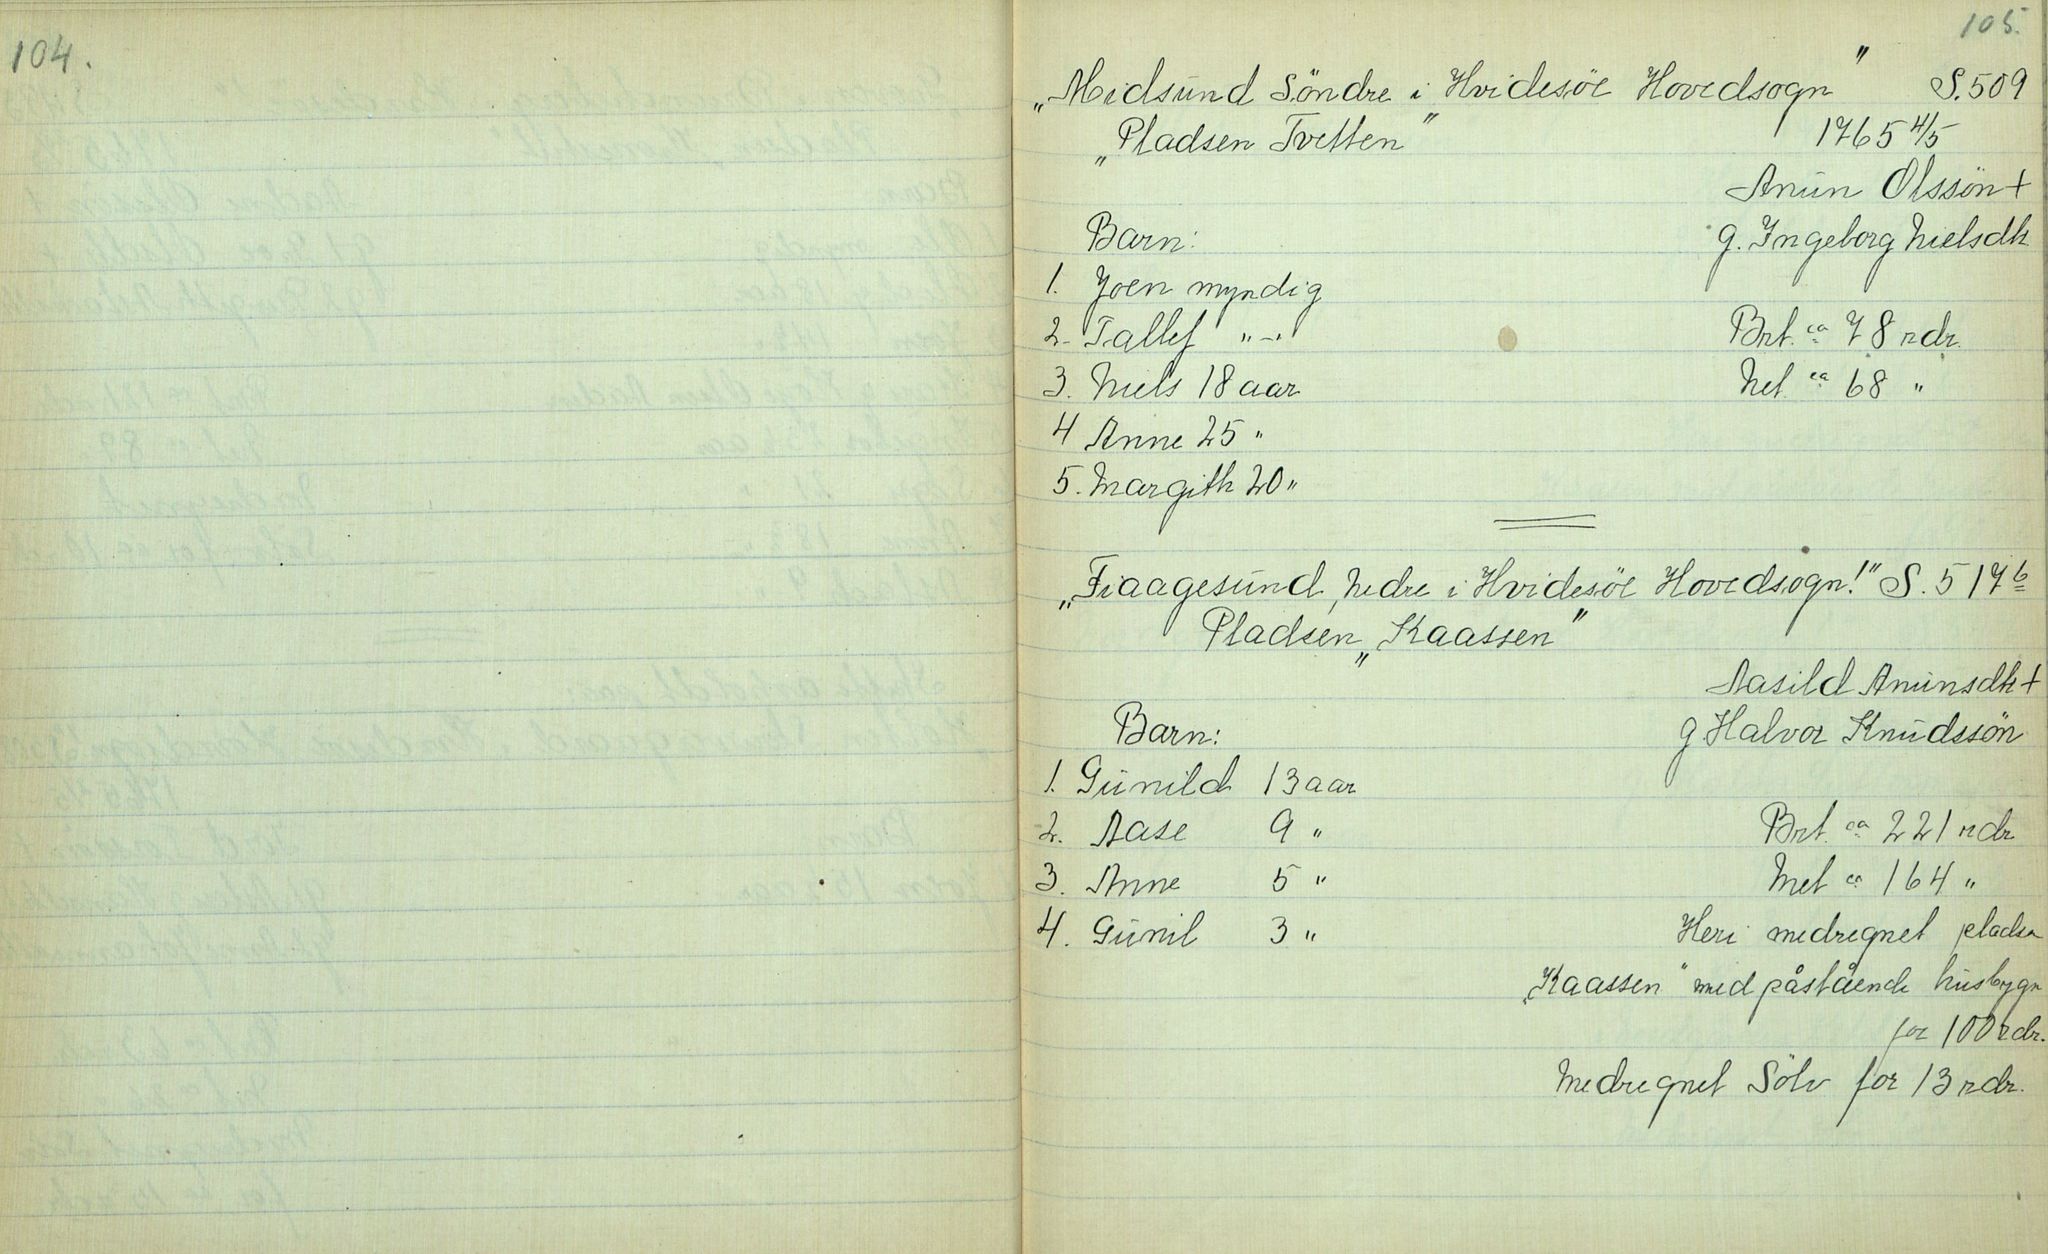 104.
105.
„Midsund Söndre i Hvidesöe Hovedsogn" S. 509
„Pladsen Tvetten" 1765 4/5
Anun Olssön +
Barn: g. Ingeborg Nielsdtr
1. Joen myndig
2. Tallef " - " Brt. ca 78 rdr.
3. Niels 18 aar Net. ca 68 "
4 Anne 25 "
5. Margith 20 "
„Fiaagesund, Nedre i Hvidesöe Hovedsogn!" S. 517 b
Pladsen „Kaassen"
Aasild Anunsdtr +
Barn: g Halvor Knudssön
1. Gunild 13 aar
2. Aase 9 " Brt. ca 221 rdr
3. Anne 5 " Net ca 164 "
4. Gunil 3 " Heri medregnet pladsn
„Kaassen" med påstående husbygn
for 100 rdr.
Medregnet Sölv for 13 rdr.